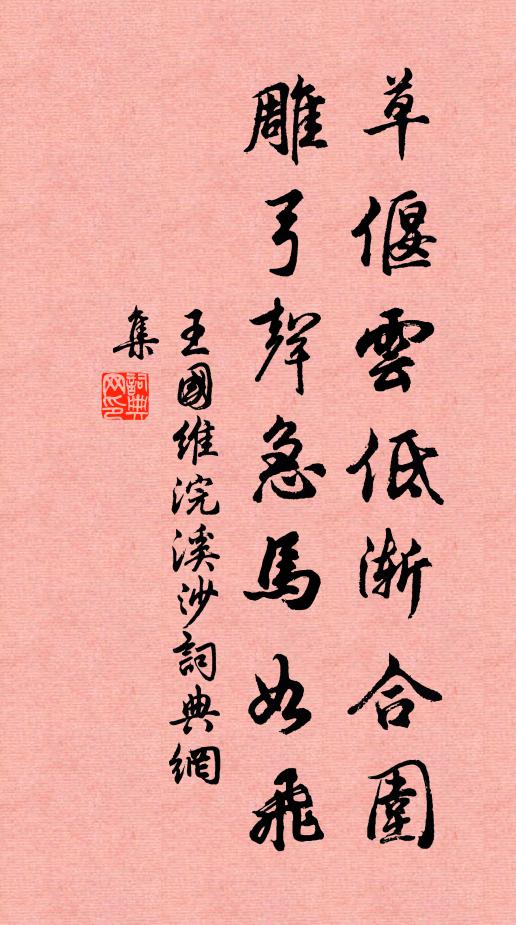 草偃雲低漸合圍
雕弓聲急馬如飛
王國維浣溪沙詞典網
集
詞典
网印